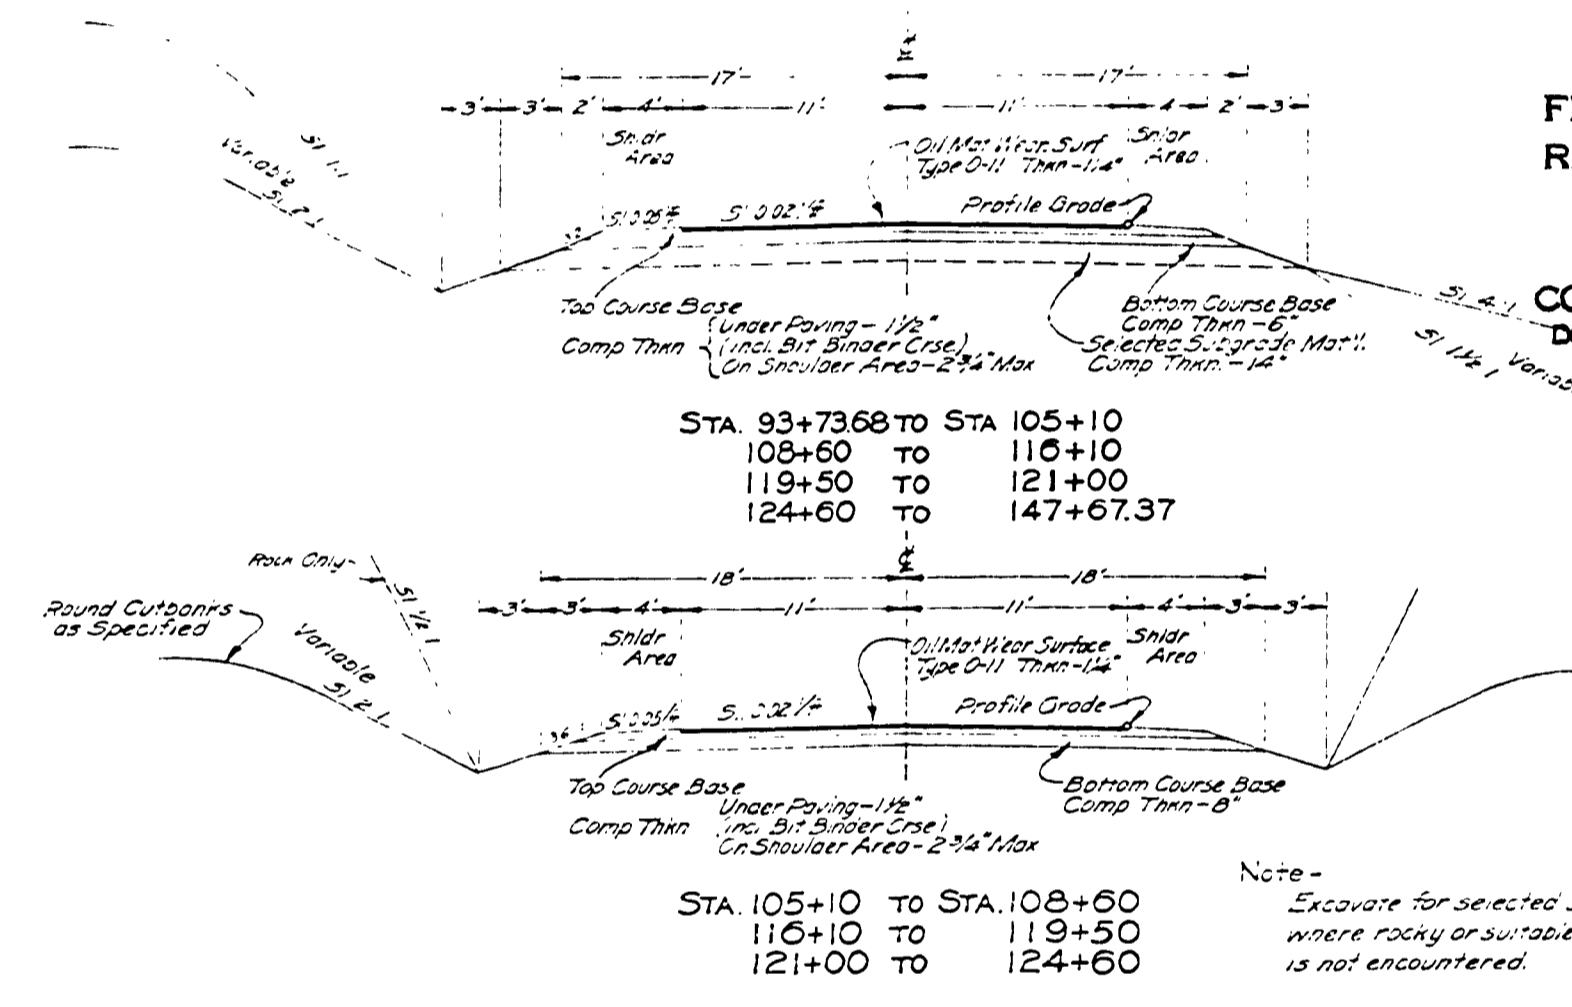 ℄
17' 17'
3' 3' 2' 4' 11' 11' 4 2' 3'
Shldr Area
Oil Mat Wear. Surf
Type O-11 Thkn-1¼"
Shldr Area
Variable
Sl 1:1
Sl 2:1
Profile Grade
Sl 0.02 '/'
F
R
Top Course Base
Comp Thkn
Under Paving - 1½"
(incl. Bit Binder Crse)
On Shoulder Area - 2¾" Max
Bottom Course Base
Comp Thkn - 6"
Selected Subgrade Mat'l.
Comp Thkn. - 14"
Sl 4:1
CO
D
Sl 1½:1
STA. 93+73.68 TO STA 105+10
108+60 TO 116+10
119+50 TO 121+00
124+60 TO 147+67.37
Rock Only
℄
18' 18'
3' 3' 4' 11' 11' 4' 3' 3'
Round Cutbanks
as Specified
Variable
Sl 2:1
Shldr Area
Oil Mat Wear Surface
Type O-11 Thkn-1¼"
Shldr Area
Profile Grade
Top Course Base
Comp Thkn
Under Paving - 1½"
(incl Bit Binder Crse)
On Shoulder Area - 2¾" Max
Bottom Course Base
Comp Thkn - 8"
STA. 105+10 TO STA. 108+60
116+10 TO 119+50
121+00 TO 124+60
Note -
Excavate for selected
where rocky or suitable
is not encountered.